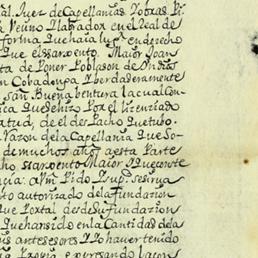 al. Juez de Capellanias Yobras Pi
Veçino Ylabrador en el Real de
forma Que haia lugr en derecho
Que el sarxento Maior Joan
ta de Poner Poblason de Yndios
n Cobadonga Yberdaderamente
san Buena bentura la cual Con
ica Que hiço Por el licenciado
atud, de el des Pacho Que tubo
Raçon de la Capellania Que So
de muchos años a esta Parte
ho sarxento Maior Y Que conste
cia: a Vm Pido Y supco se sirva
nto autoriçado de la fundacion
que Por tal des de su fundaçion
Que han sido en la Cantidad de la
us antesesores Y Yo haver tenido
ia Propia expresando la con